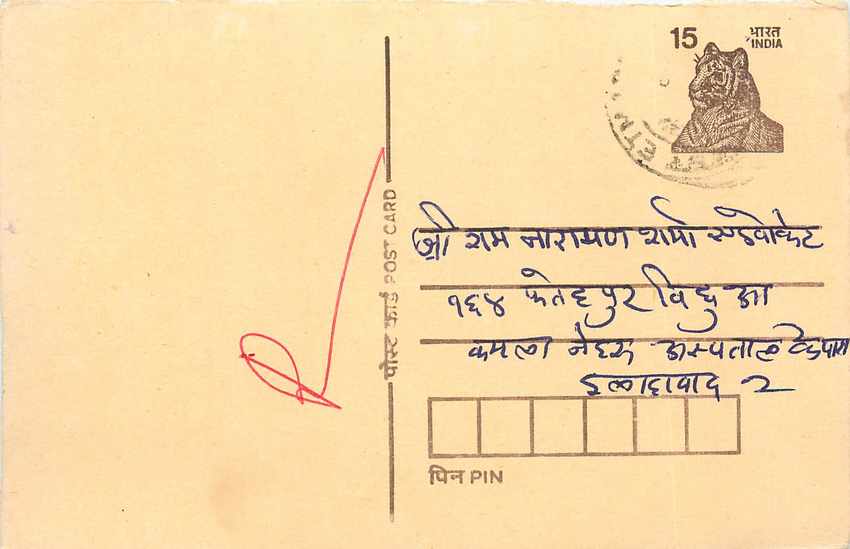 15 भारत
INDIA
पोस्ट कार्ड POST CARD
श्री राम नारायण शर्मा एडवोकेट
१६४ फतेहपुर बिछुआ
कमला नेहरू अस्पताल के पास
इलाहाबाद 2
पिन PIN